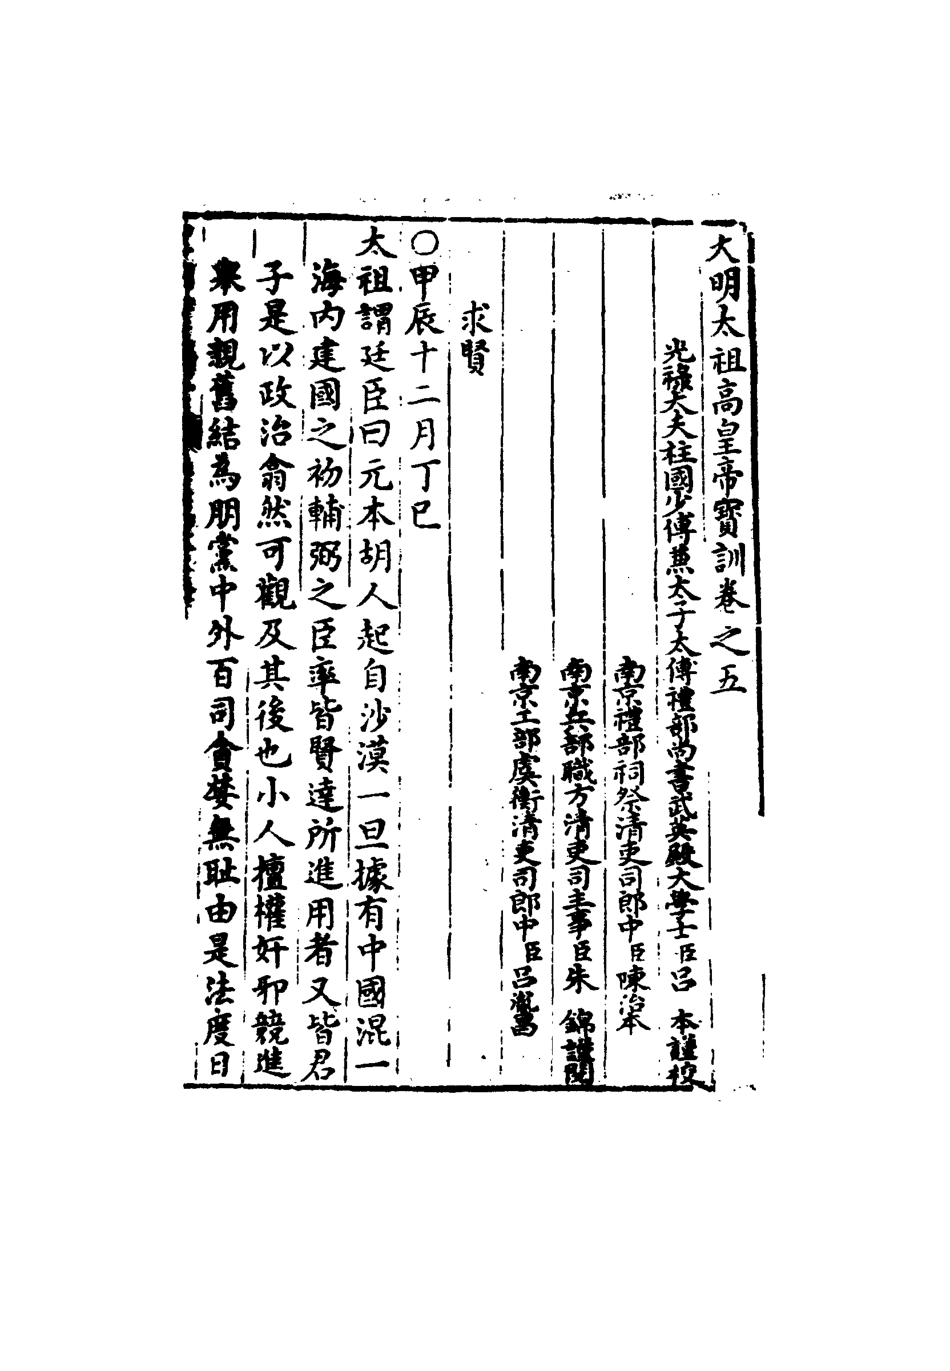 大明太祖高皇帝寶訓卷之五
光祿大夫柱國少傅兼太子太傅禮部尚書武英殿大學士臣呂 本謹校
南京禮部祠祭清吏司郎中臣陳治本
南京兵部職方清吏司主事臣朱 錦謹閱
南京工部虞衡清吏司郎中臣呂胤昌
求賢
○甲辰十二月丁巳
太祖謂廷臣曰元本胡人起自沙漠一旦據有中國混一
海內建國之初輔弼之臣率皆賢達所進用者又皆君
子是以政治翕然可觀及其後也小人擅權奸邪競進
舉用親舊結為朋黨中外百司貪婪無恥由是法度日